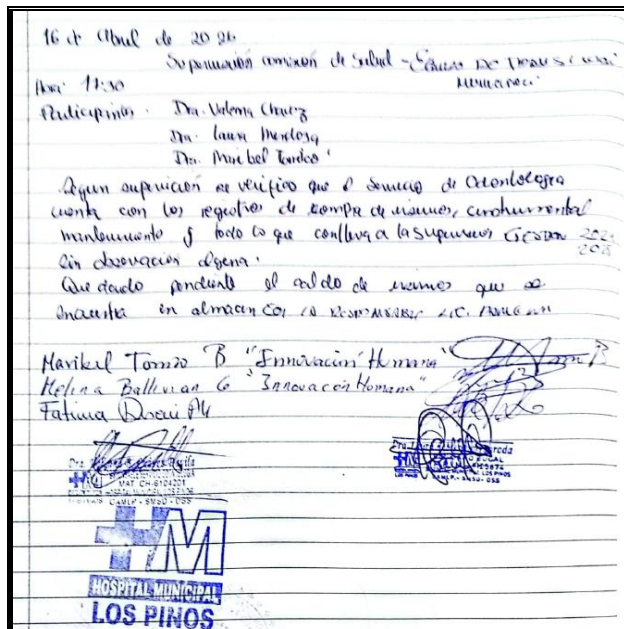 16 de Abril de 2026
Supervisión comisión de Salud - Equipo de Transición
Municipal
Hora: 11:30
Participantes: Dra. Valeria Chavez
Dra. Laura Mendoza
Dra. Maribel Torrico
Segun supervición se verifico que el Servicio de Odontologia
cuenta con los registros de compra de insumos, instrumental
mantenimiento y todo lo que conlleva a la supervision GESTION 2024
2025
sin observación alguna.
Quedando pendiente el saldo de insumos que se
encuentra en almacen CON LA RESPONSABLE LIC.
Maribel B "Innovación Humana"
Melina Ballivian G "Innovación Humana"
Fatima
MAT. CH-6104201
HOSPITAL MUNICIPAL LOS PINOS
GAMLP - SMSD - DSS
LOS PINOS
GAMLP - SMSD - DSS
HM
HOSPITAL MUNICIPAL
LOS PINOS